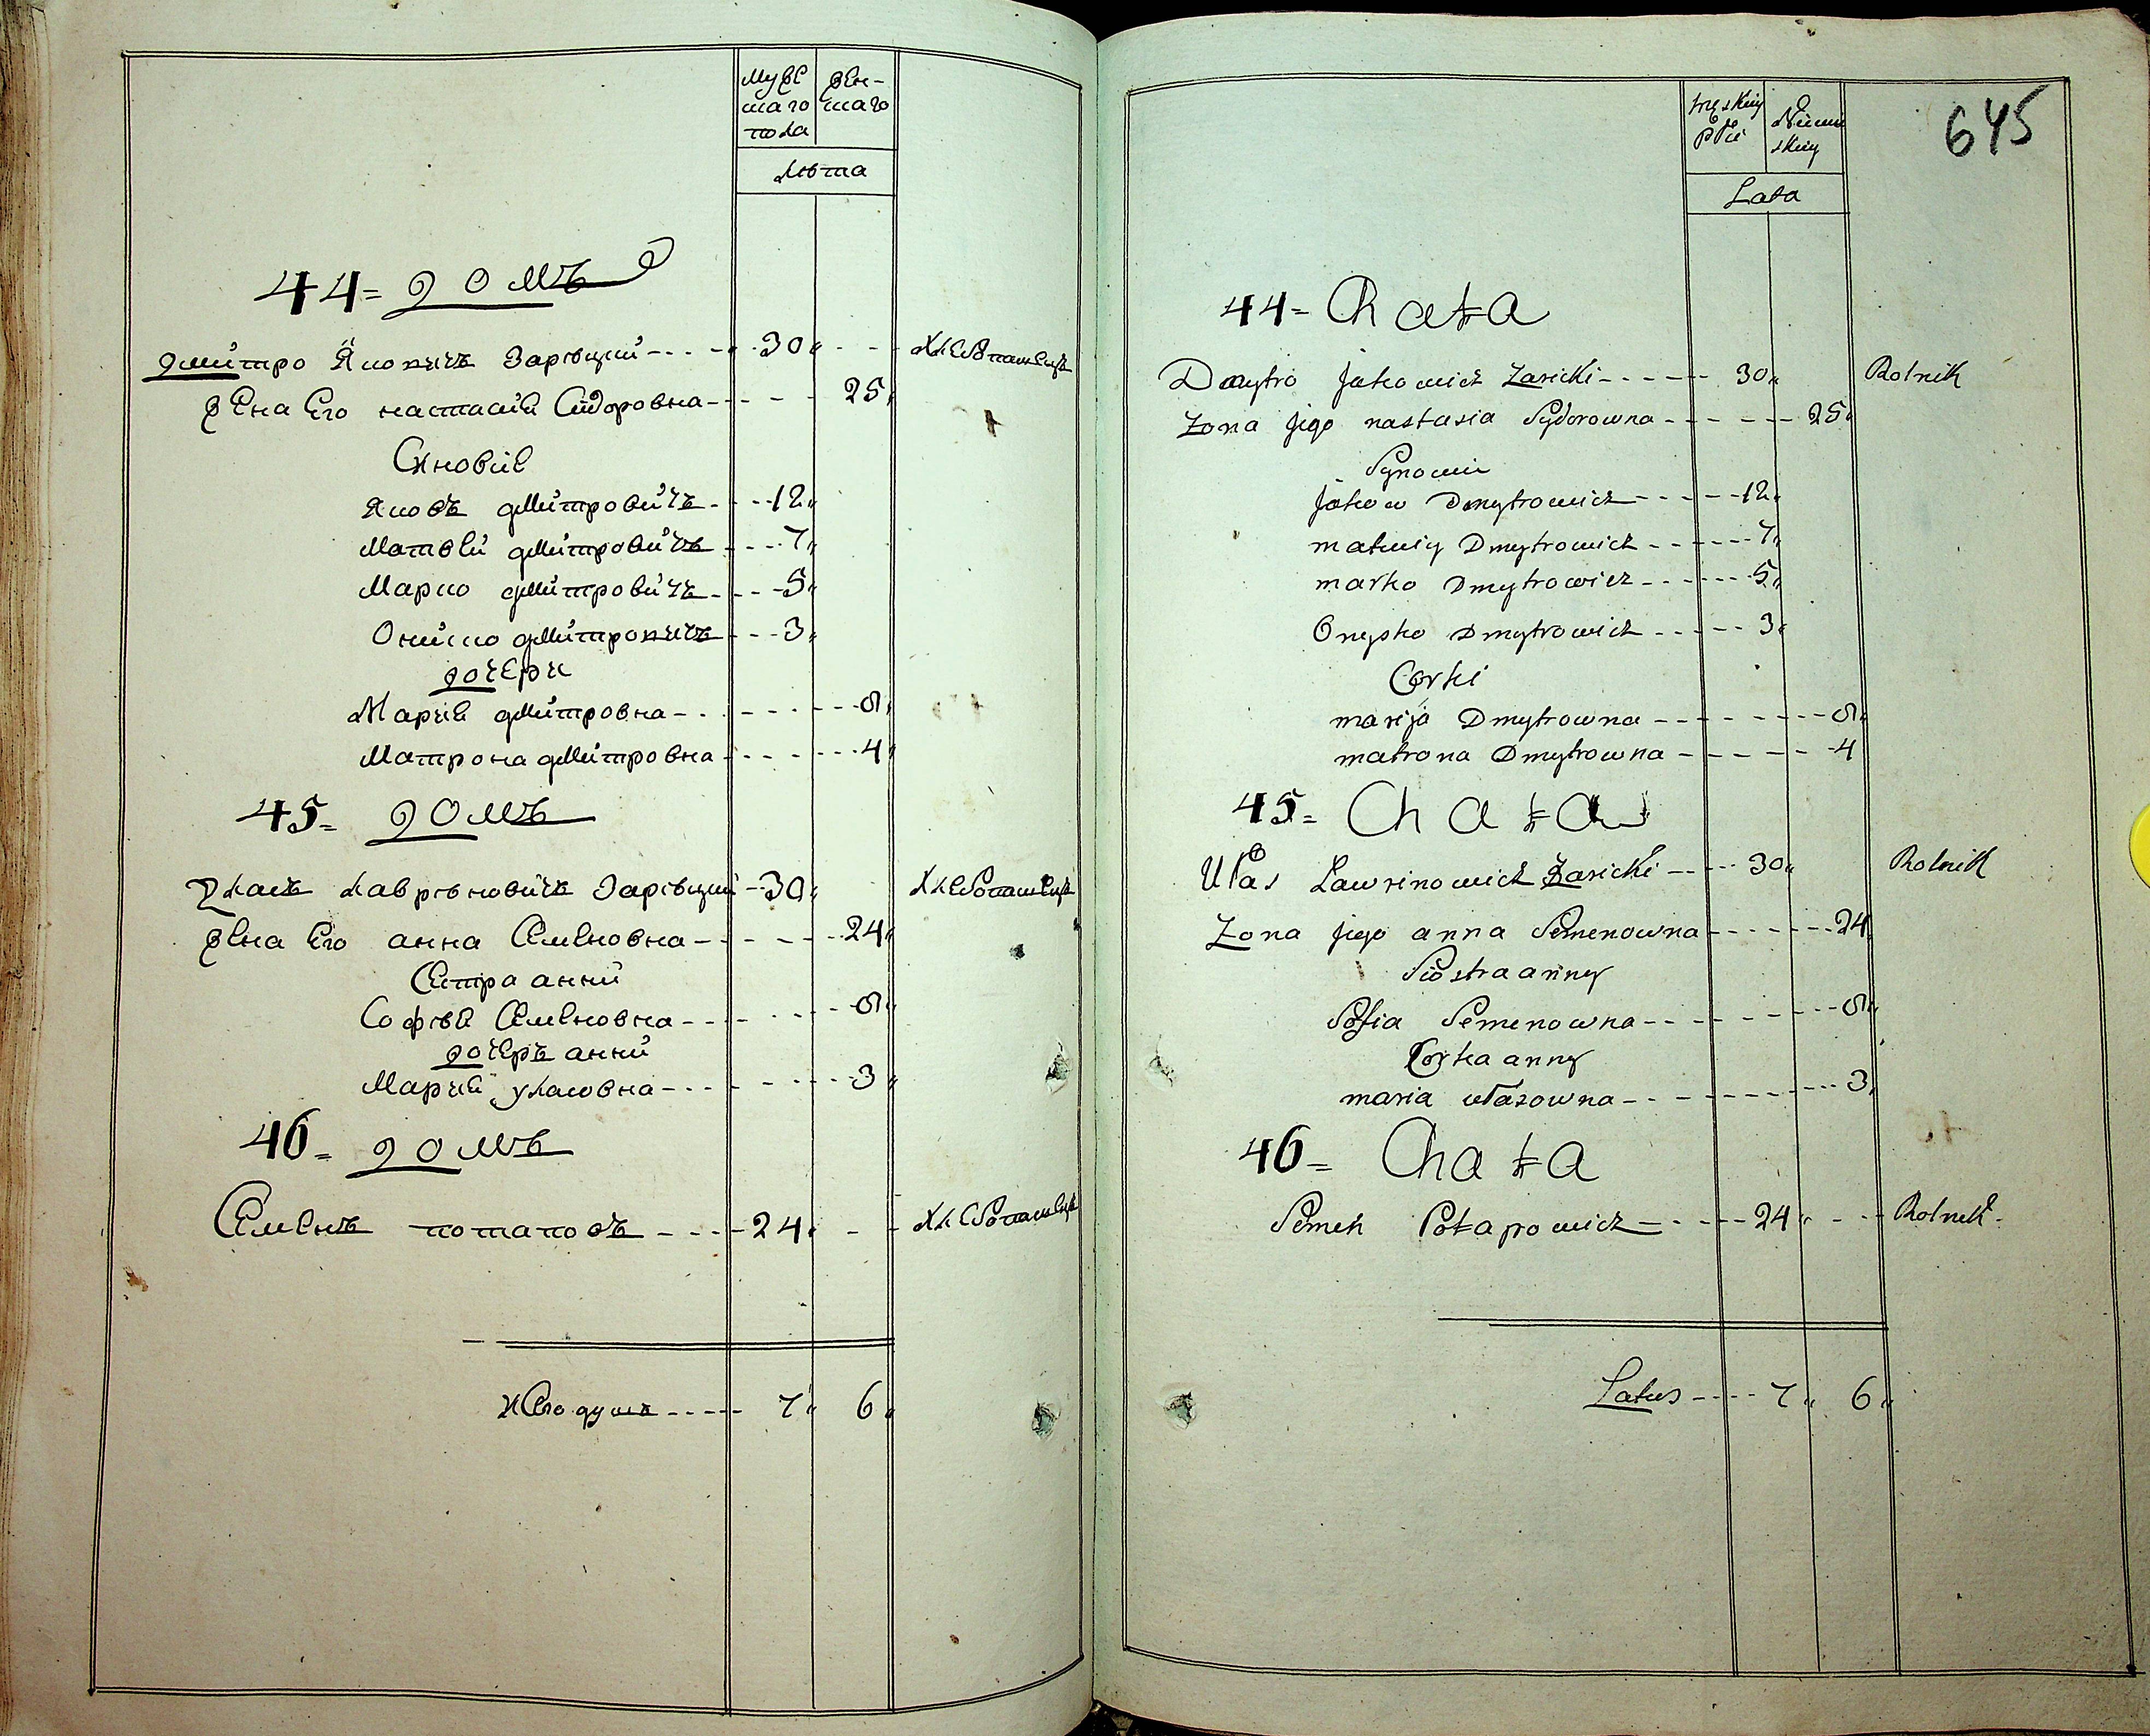 Муже
шаго
пола
Жен-
шаго
Лѣта
44= Домъ
Дмитро Яковичъ Зарѣцкий 30
Жена Его настасия Сидоровна 25
Синовие
Яковъ Дмитровичъ 12
Матвей Дмитровичъ 7
Марко Дмитровичъ 5
Ониско Дмитровичъ 3
Дочери
Мария Дмитровна 8
Матрона Дмитровна 4
45= Домъ
Уласъ Лаврѣновичъ Зарѣцкий 30
Жена Его анна Семеновна 24
Сестра анни
Софѣя Семеновна 8
Дочеръ анни
Мария уласовна 3
46= Домъ
Семенъ потаповъ 24
всего душъ 7 6
645
męskiey
płci
Lata
44= Chata
Dmytro Jakowicz Zaricki 30 Rolnik
Zona jego nastasia Sydorowna 25
Synowie
Jakow Dmytrowicz 12
matwiy Dmytrowicz 7
marko Dmytrowicz 5
Onysko Dmytrowicz 3
Corki
marija Dmytrowna 8
matrona Dmytrowna 4
45= Chata
Ułas Lawrinowicz Zaricki 30 Rolnik
Zona jego anna Semenowna 24
Siostra anny
Sofia Semenowna 8
Corka anny
maria ułasowna 3
46= Chata
Semen Potapowicz 24 Rolnik
Latus 7 6